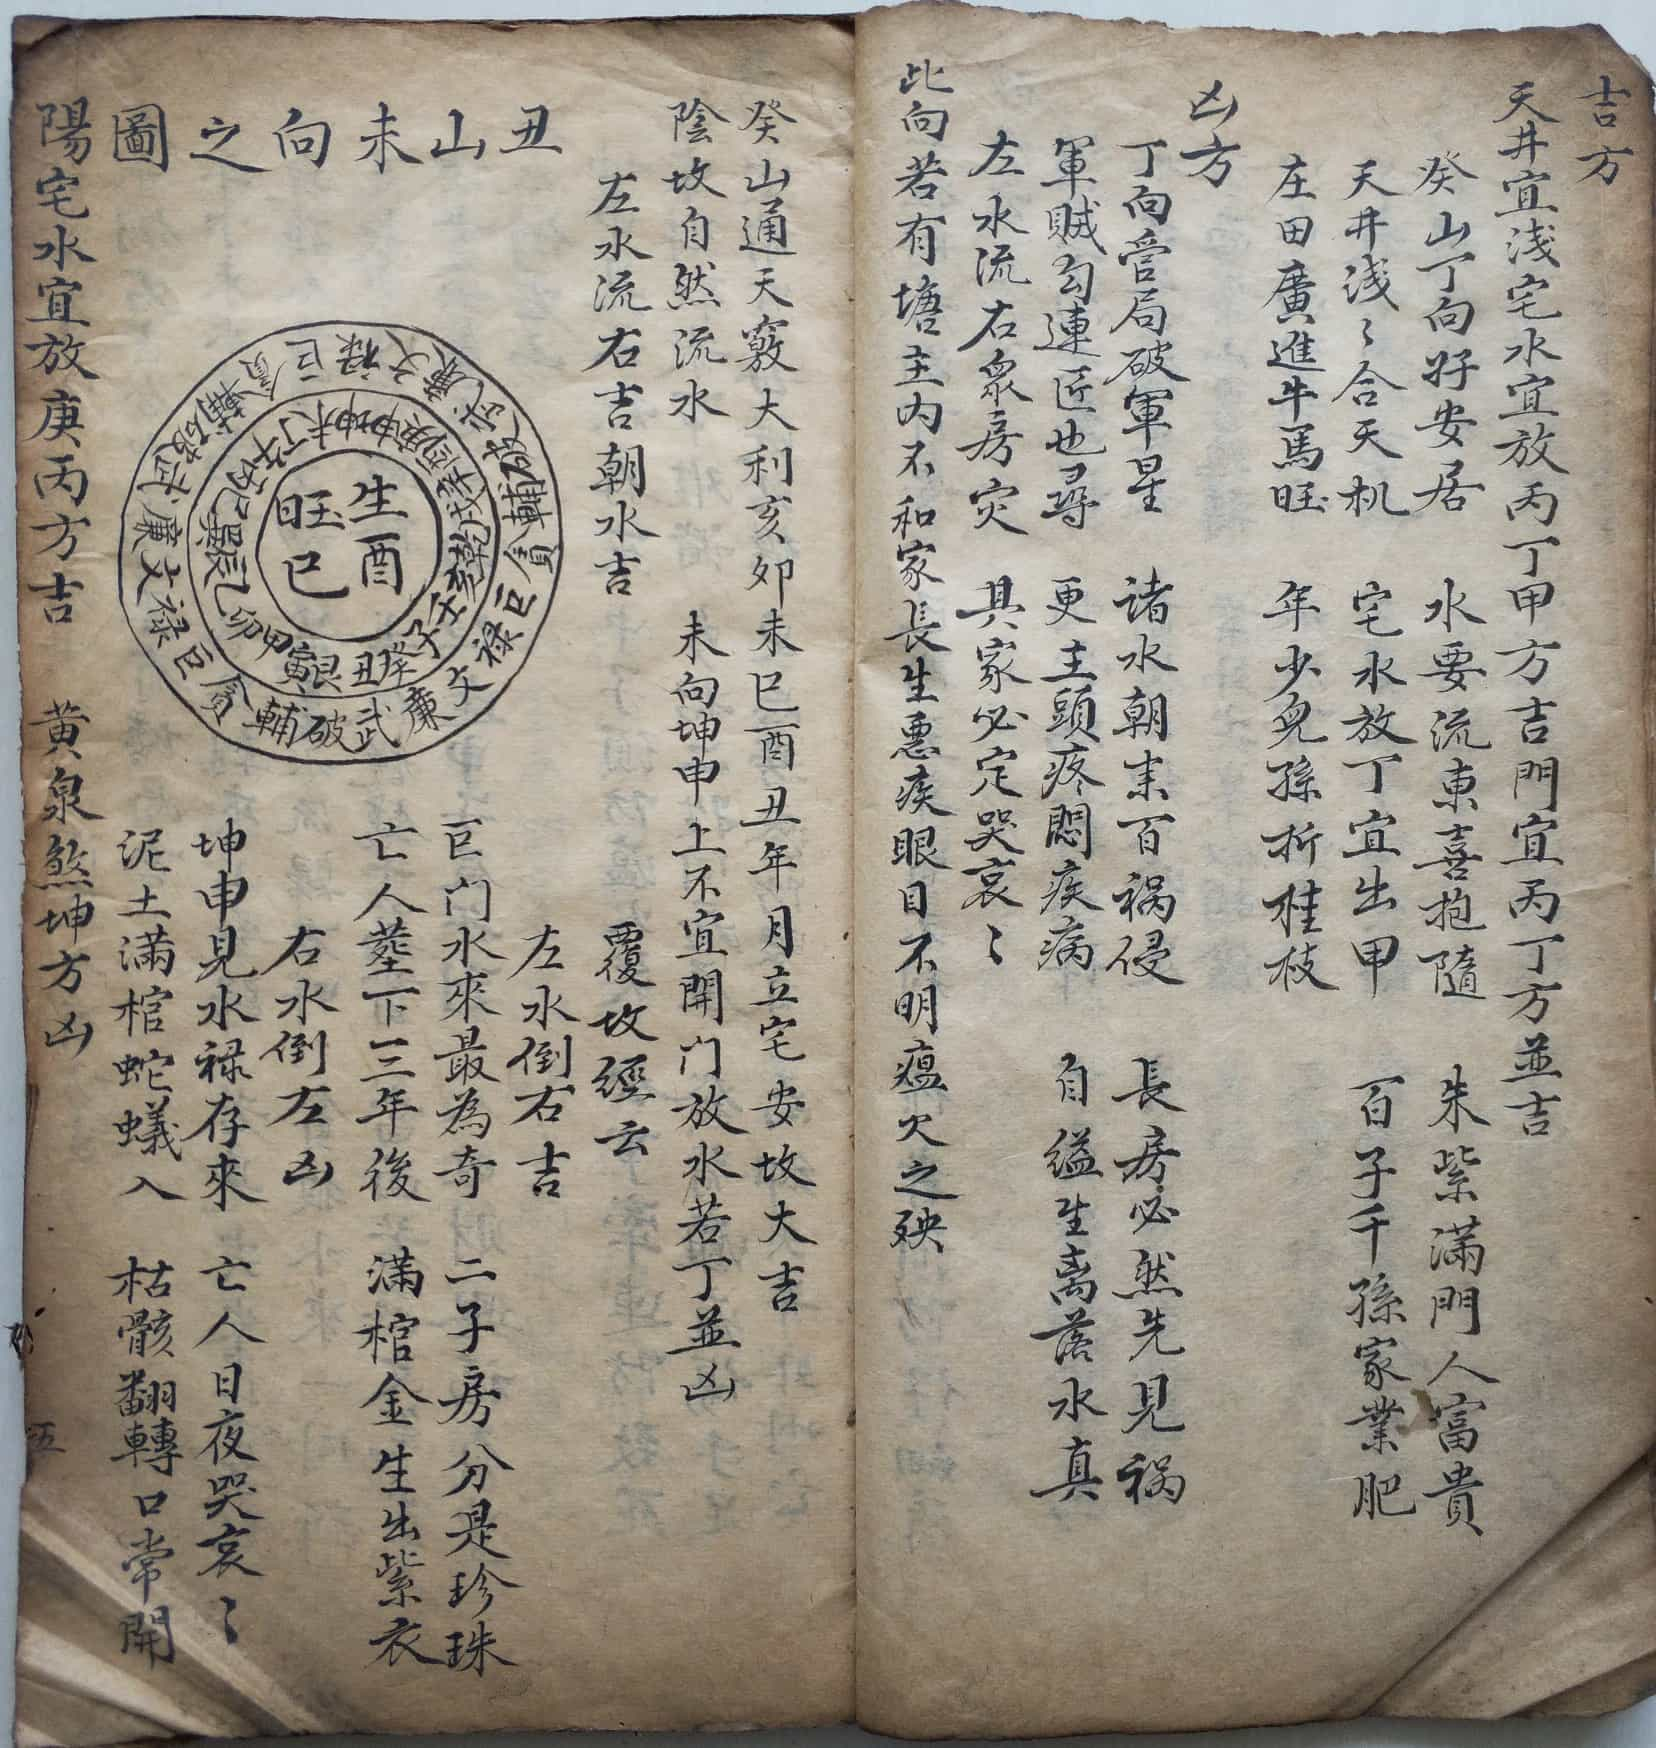 吉方
天井宜浅宅水宜放丙丁甲方吉門宜丙丁方並吉
癸山丁向好安居　水要流東喜抱隨　朱紫滿門人富貴
天井浅〻合天机　宅水放丁宜出甲　百子千孫家業肥
庄田廣進牛馬旺　年少兒孫折桂枝
凶方
丁向官局破軍星　諸水朝来百祸侵　長房必然先見祸
軍贼勾連匠也尋　更主頭疼悶疾病　自缢生离落水真
左水流右衆房灾　其家必定哭哀〻
此向若有塘主内不和家長生悪疾眼目不明瘟火之殃
癸山通天竅大利亥卯未巳酉丑年月立宅安坟大吉
陰坟自然流水　未向坤申上不宜開门放水若丁並凶
左水流右吉朝水吉　覆坟經云
左水倒右吉
丑山未向之圖
巨门水來最為奇　二子房分是珍珠
亡人塟下三年後　滿棺金生出紫衣
右水倒左凶
坤申見水禄存來　亡人日夜哭哀〻
泥土滿棺蛇蟻入　枯骸翻轉口常開
生酉
旺巳
丑癸子壬亥乾戌辛酉庚申坤未丁午丙巳巽辰乙卯甲寅艮
武廉文禄巨貪輔破武廉文禄巨貪輔破武廉文禄巨貪輔破
陽宅水宜放庚丙方吉　黄泉煞坤方凶
五